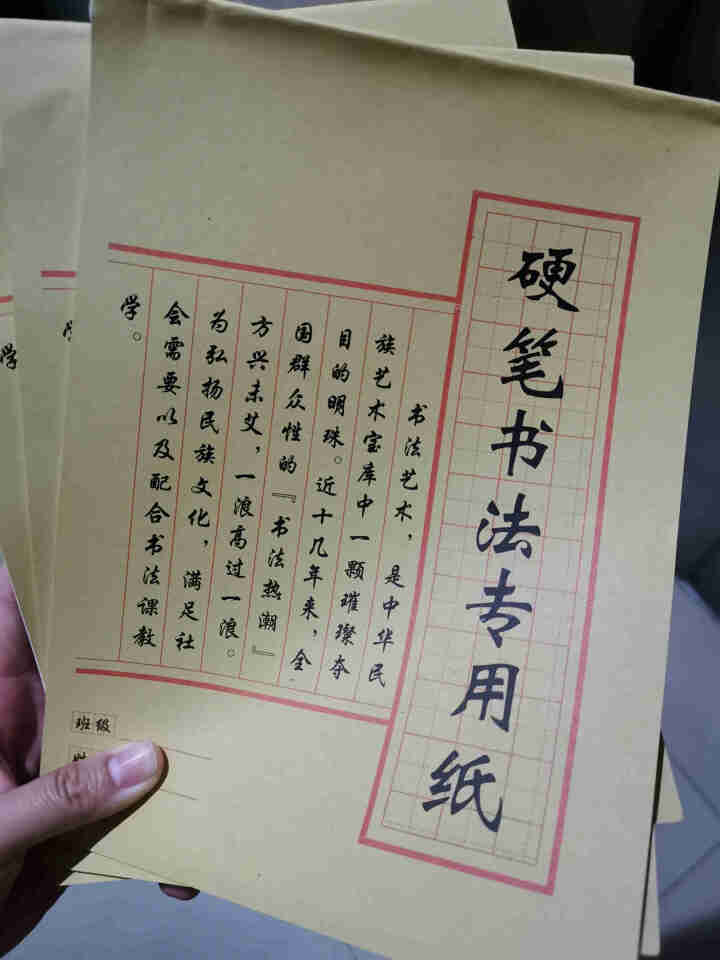 硬笔书法专用纸
书法艺术，是中华民
族艺术宝库中一颗璀璨夺
目的明珠。近十几年来，全
国群众性的『书法热潮』
方兴未艾，一浪高过一浪。
为弘扬民族文化，满足社
会需要以及配合书法课教
学。
班级
学